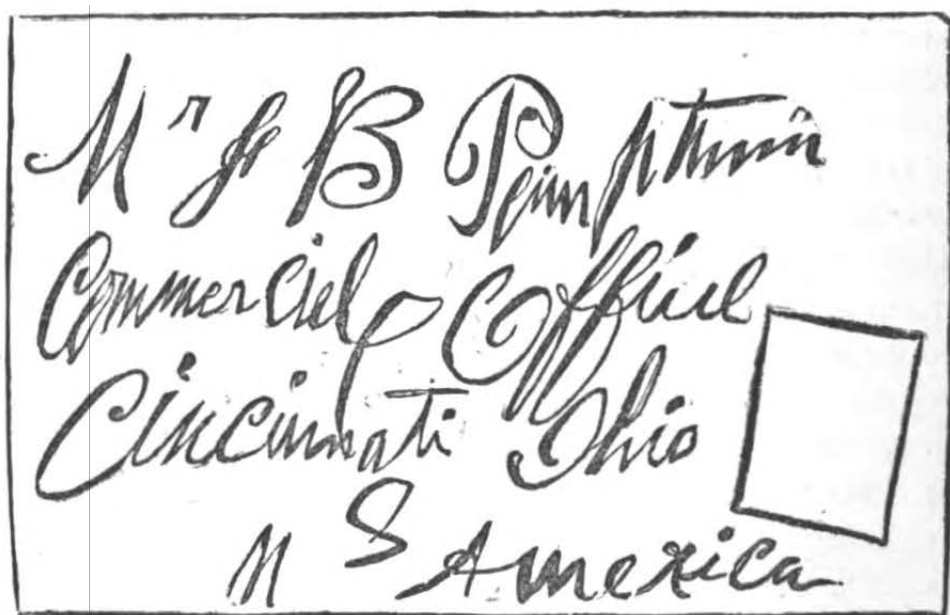 Mr Jr B
Commerciel Office
Cincinnati Ohio
S America